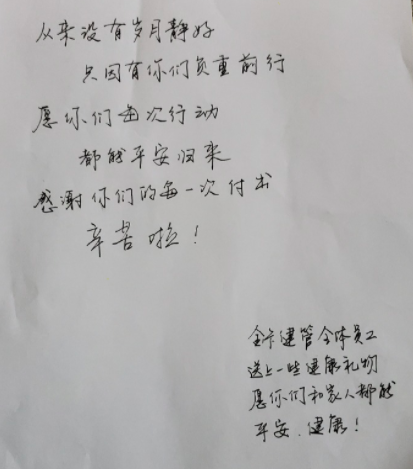 从来没有岁月静好
只因有你们负重前行
愿你们每次行动
都能平安归来
感谢你们的每一次付出
辛苦啦！
金卡健管全体员工
送上一些健康礼物
愿你们和家人都能
平安、健康！